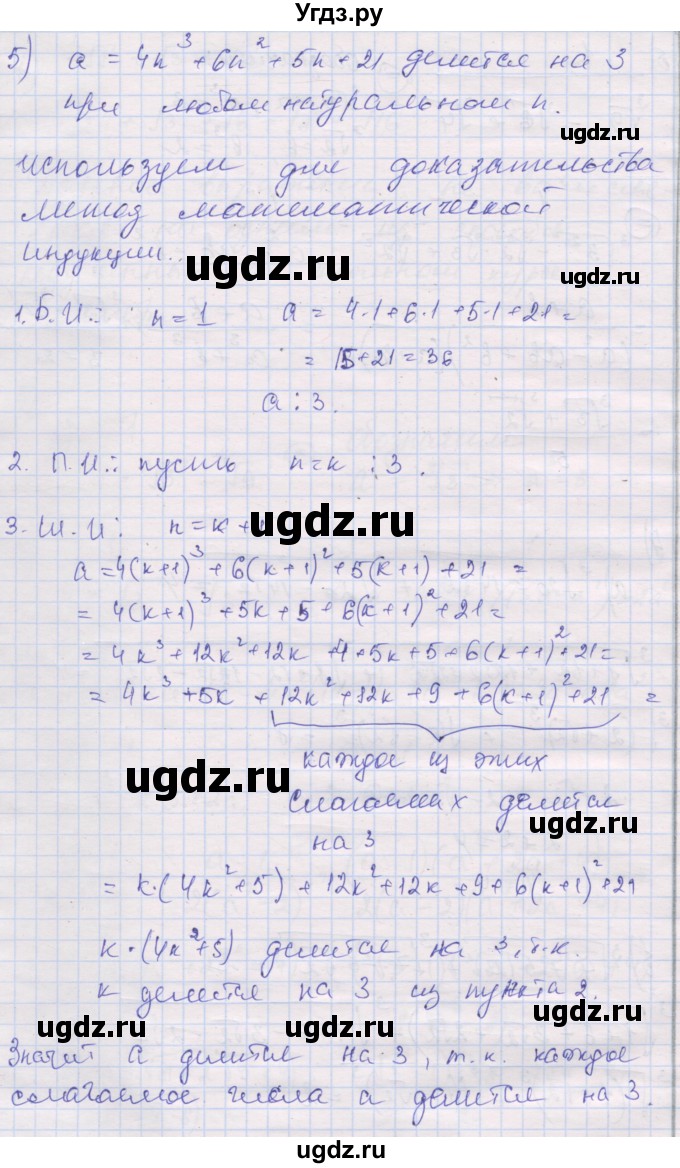 Угдз.ру
5) a = 4n³ + 6n² + 5n + 21 делится на 3
при любом натуральном n.
Используем для доказательства
метод математической
индукции.
ugdz.ru
1. Б.И.: n = 1 a = 4·1+6·1+5·1+21 =
= 15+21 = 36
a ⋮ 3.
2. П.И.: пусть n=k ⋮ 3.
ugdz.ru
3. Ш.И: n = k +
a = 4(k+1)³ + 6(k+1)² + 5(k+1) + 21 =
= 4(k+1)³ + 5k + 5 + 6(k+1)² + 21 =
= 4k³ + 12k² + 12k + 4 + 5k + 5 + 6(k+1)² + 21 =
= 4k³ + 5k + 12k² + 12k + 9 + 6(k+1)² + 21 =
ugdz.ru
каждое из этих
слагаемых делится
на 3
= k·(4k² + 5) + 12k² + 12k + 9 + 6(k+1)² + 21
k·(4k²+5) делится на 3, т.к.
k делится на 3 из пункта 2.
ugdz.ru ugdz.ru
Значит a делится на 3, т.к. каждое
слагаемое числа a делится на 3.
ugdz.ru